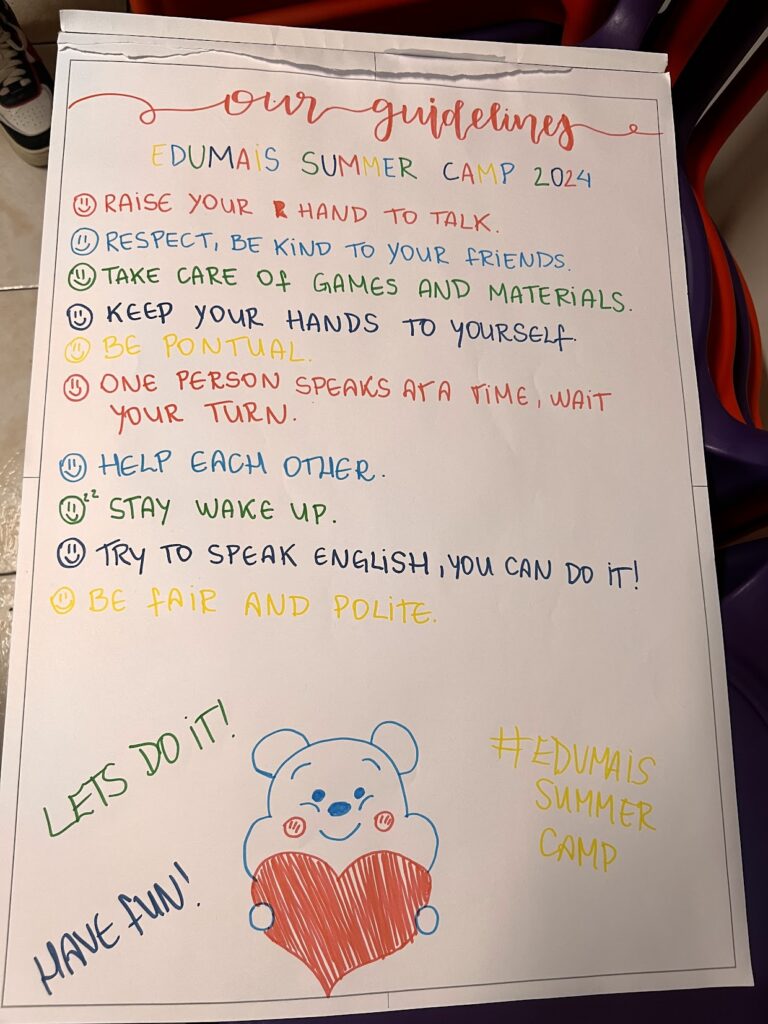 our guidelines
EDUMAiS SUMMER CAMP 2024
RAISE YOUR R HAND TO TALK.
RESPECT, BE KiND TO YOUR FRiENDS.
TAKE CARE OF GAMES AND MATERiALS.
KEEP YOUR HANDS TO YOURSELF.
BE PONTUAL.
ONE PERSON SPEAKS AT A TiME, WAiT
YOUR TURN.
HELP EACH OTHER.
zz STAY WAKE UP.
TRY TO SPEAK ENGLiSH, YOU CAN DO iT!
BE FAiR AND POLiTE.
LETS DO iT!
#EDUMAiS
SUMMER
CAMP
HAVE FUN!